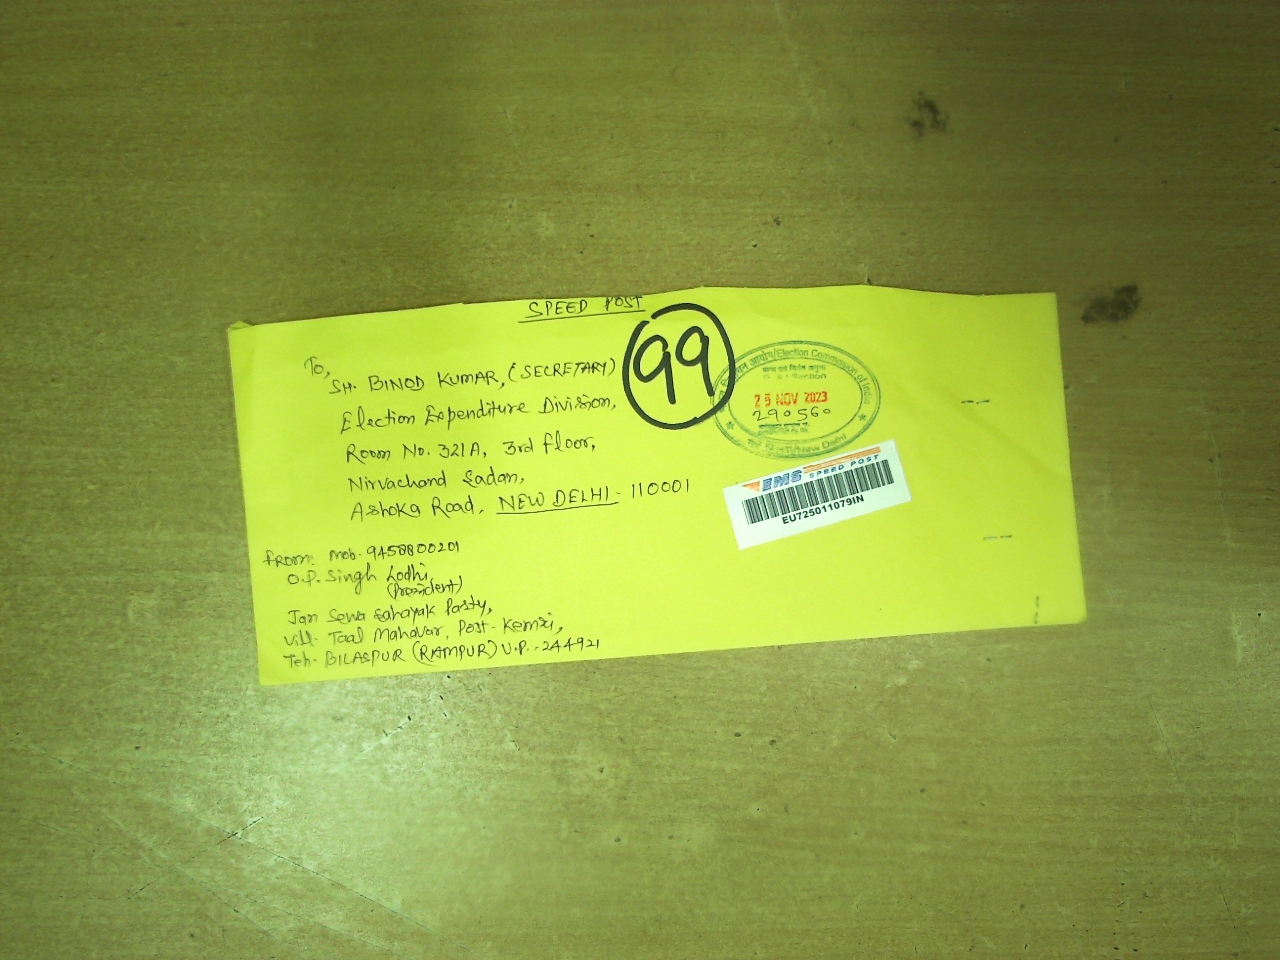 SPEED POST
To,
SH. BINOD KUMAR, (SECRETARY)
Election Expenditure Division,
Room No. 321A, 3rd floor,
Nirvachand Sadan,
Ashoka Road, NEW DELHI - 110001
99
आयोग/Election Commission of India
25 NOV 2023
290560
New Delhi
EMS SPEED POST
EU725011079IN
From: Mob. 9458800201
O.P. Singh Lodhi,
(President)
Jan Sewa Sahayak Party,
Vill- Taal Mahavar, Post- Kemri,
Teh- BILASPUR (RAMPUR) U.P. - 244921